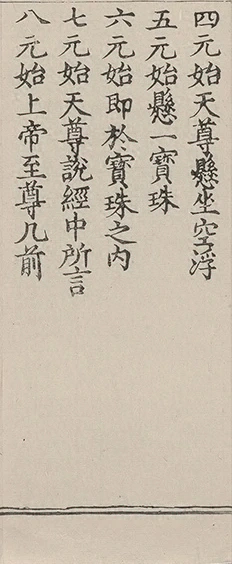 四元始天尊懸坐空浮
五元始懸一寶珠
六元始即於寶珠之内
七元始天尊說經中所言
八元始上帝至尊几前